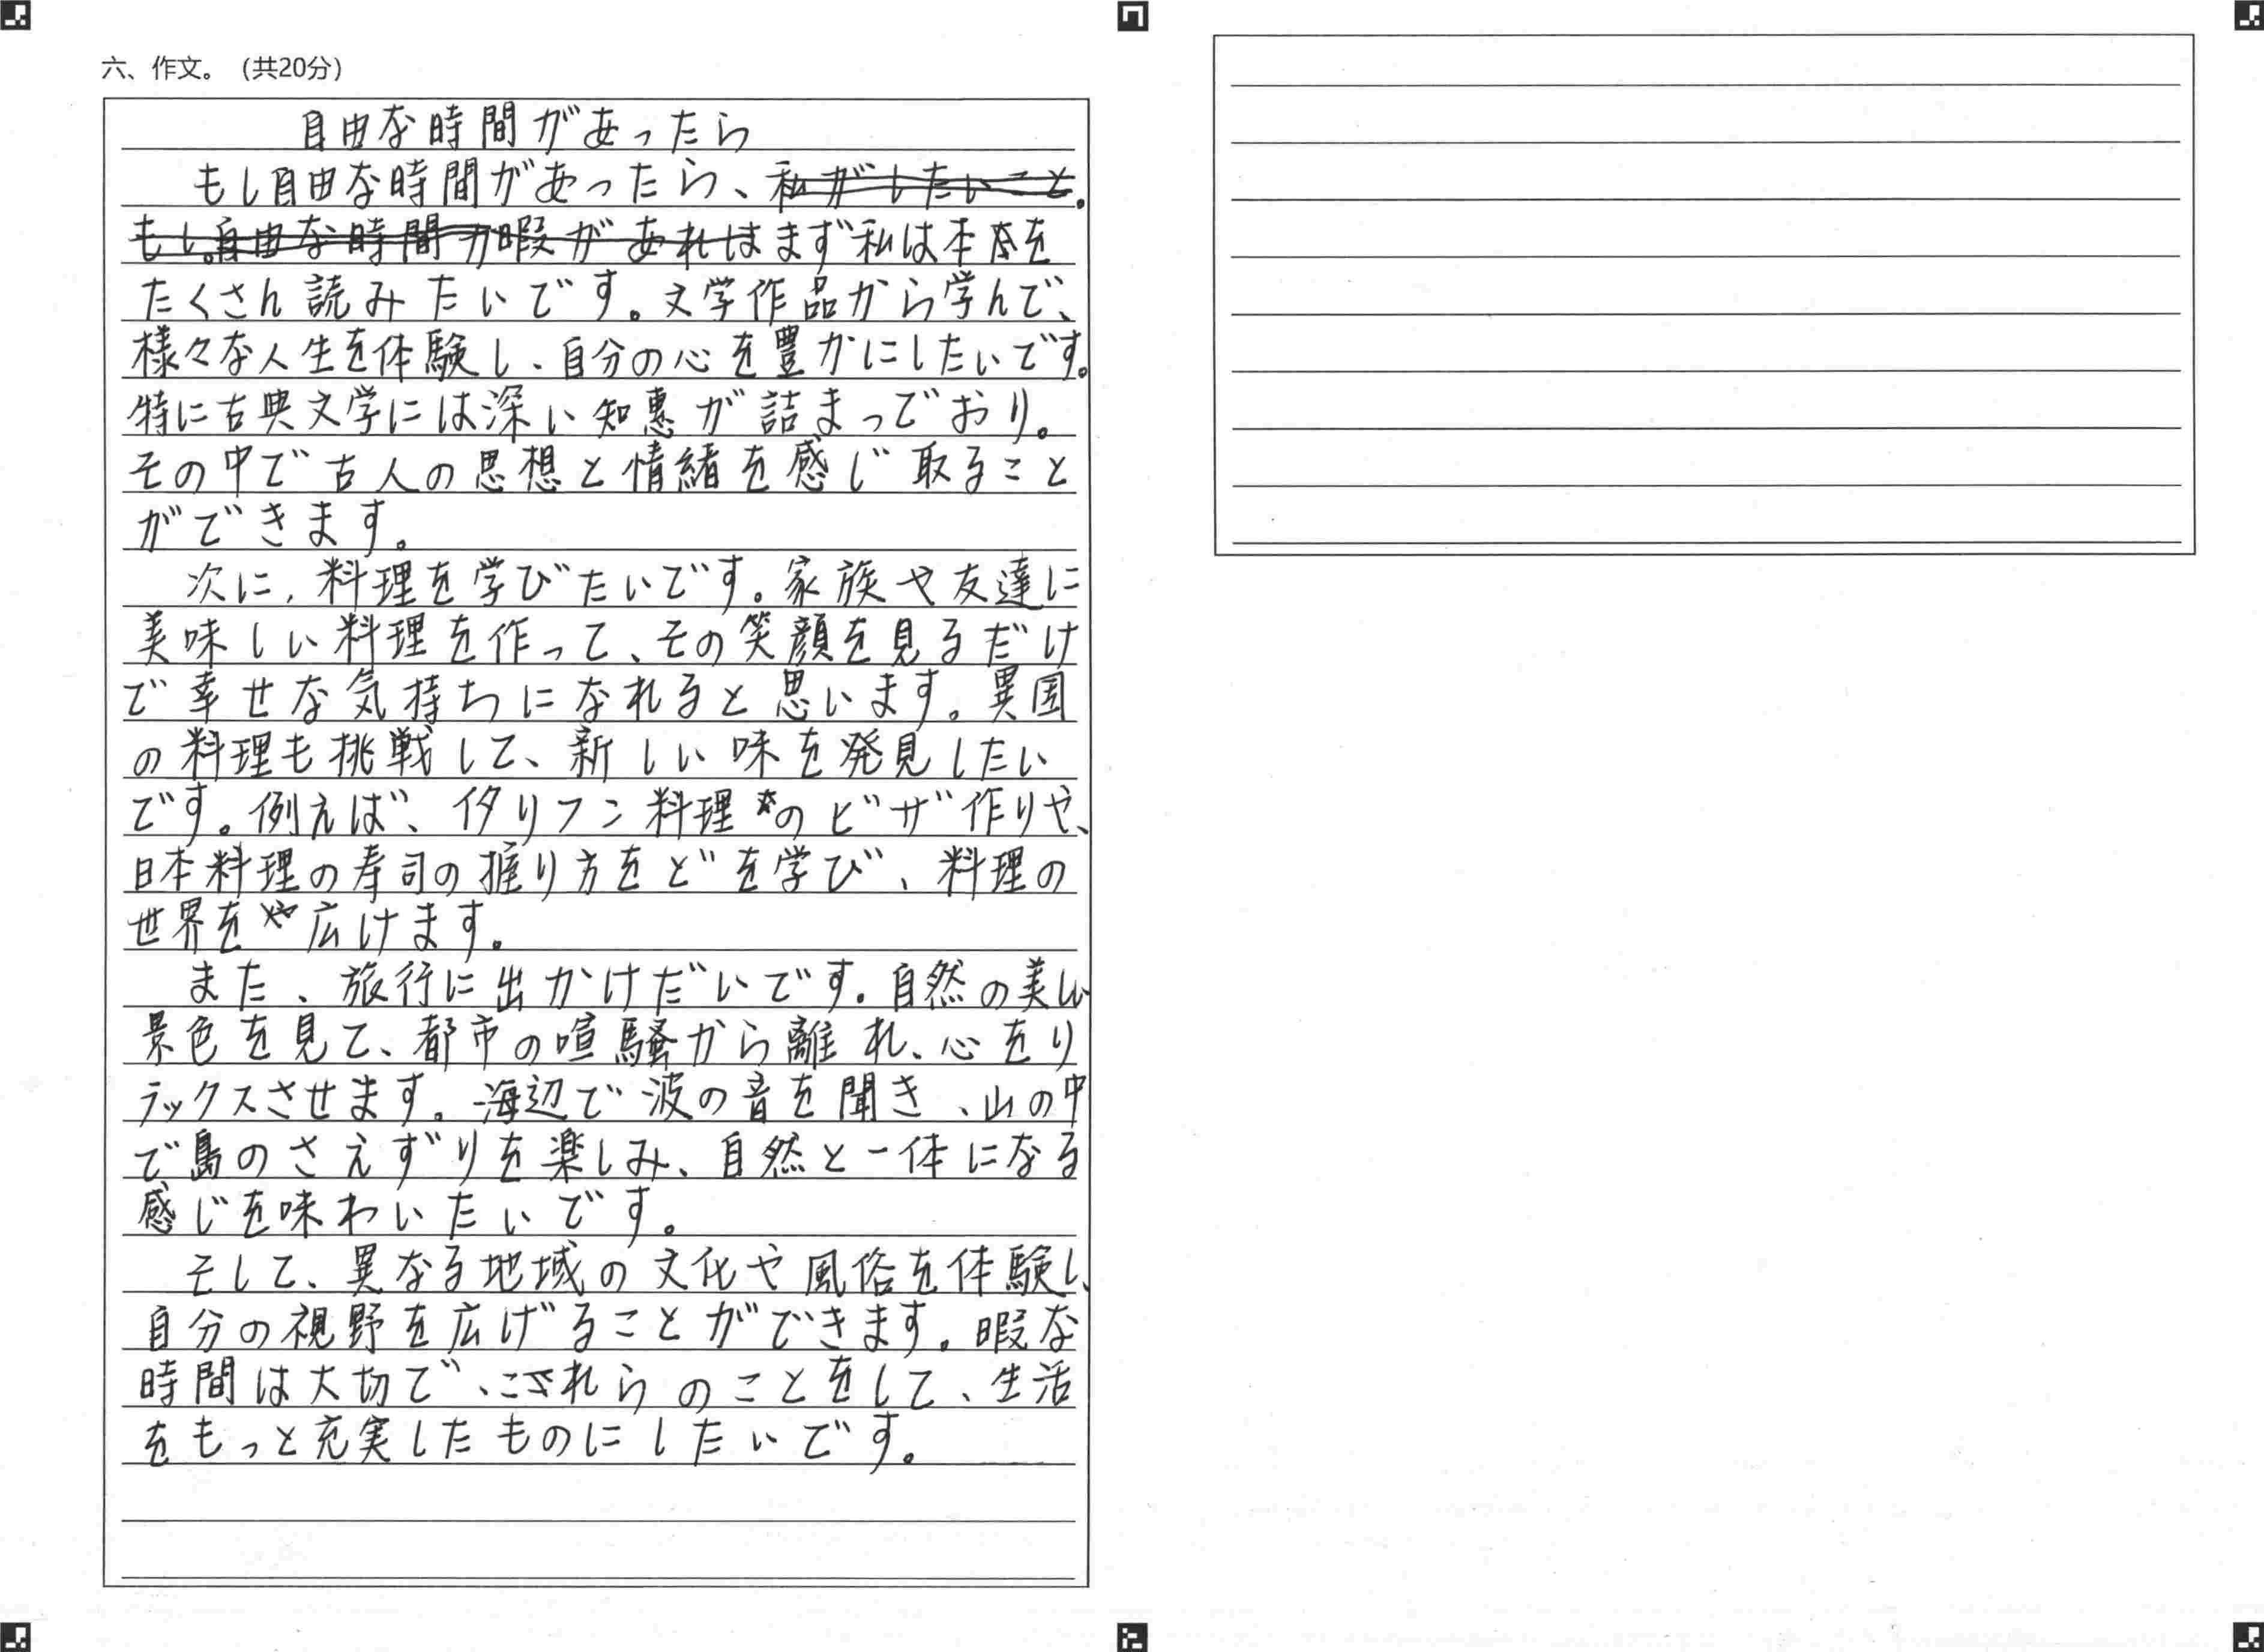 六、作文。（共20分）
自由な時間があったら
もし自由な時間があったら、私がしたいこと。
もし自由な時間が暇があればまず私は本を
たくさん読みたいです。文学作品から学んで、
様々な人生を体験し、自分の心を豊かにしたいです。
特に古典文学には深い知恵が詰まっでおり。
その中で古人の思想と情緒を感じ取ること
ができます。
次に、料理を学びたいです。家族や友達に
美味しい料理を作って、その笑顔を見るだけ
で幸せな気持ちになれると思います。異国
の料理も挑戦して、新しい味を発見したい
です。例えば、イタリフン料理のピザ作りや、
日本料理の寿司の握り方をどを学び、料理の
世界を広けます。
また、旅行に出かけだいです。自然の美しい
景色を見て、都市の喧騒から離れ、心をリ
ラックスさせます。海辺で波の音を聞き、山の中
で鳥のさえずりを楽しみ、自然と一体になる
感じを味わいたいです。
そして、異なる地域の文化や風俗を体験し、
自分の視野を広げることができます。暇な
時間は大切で、これらのことをして、生活
をもっと充実したものにしたいです。